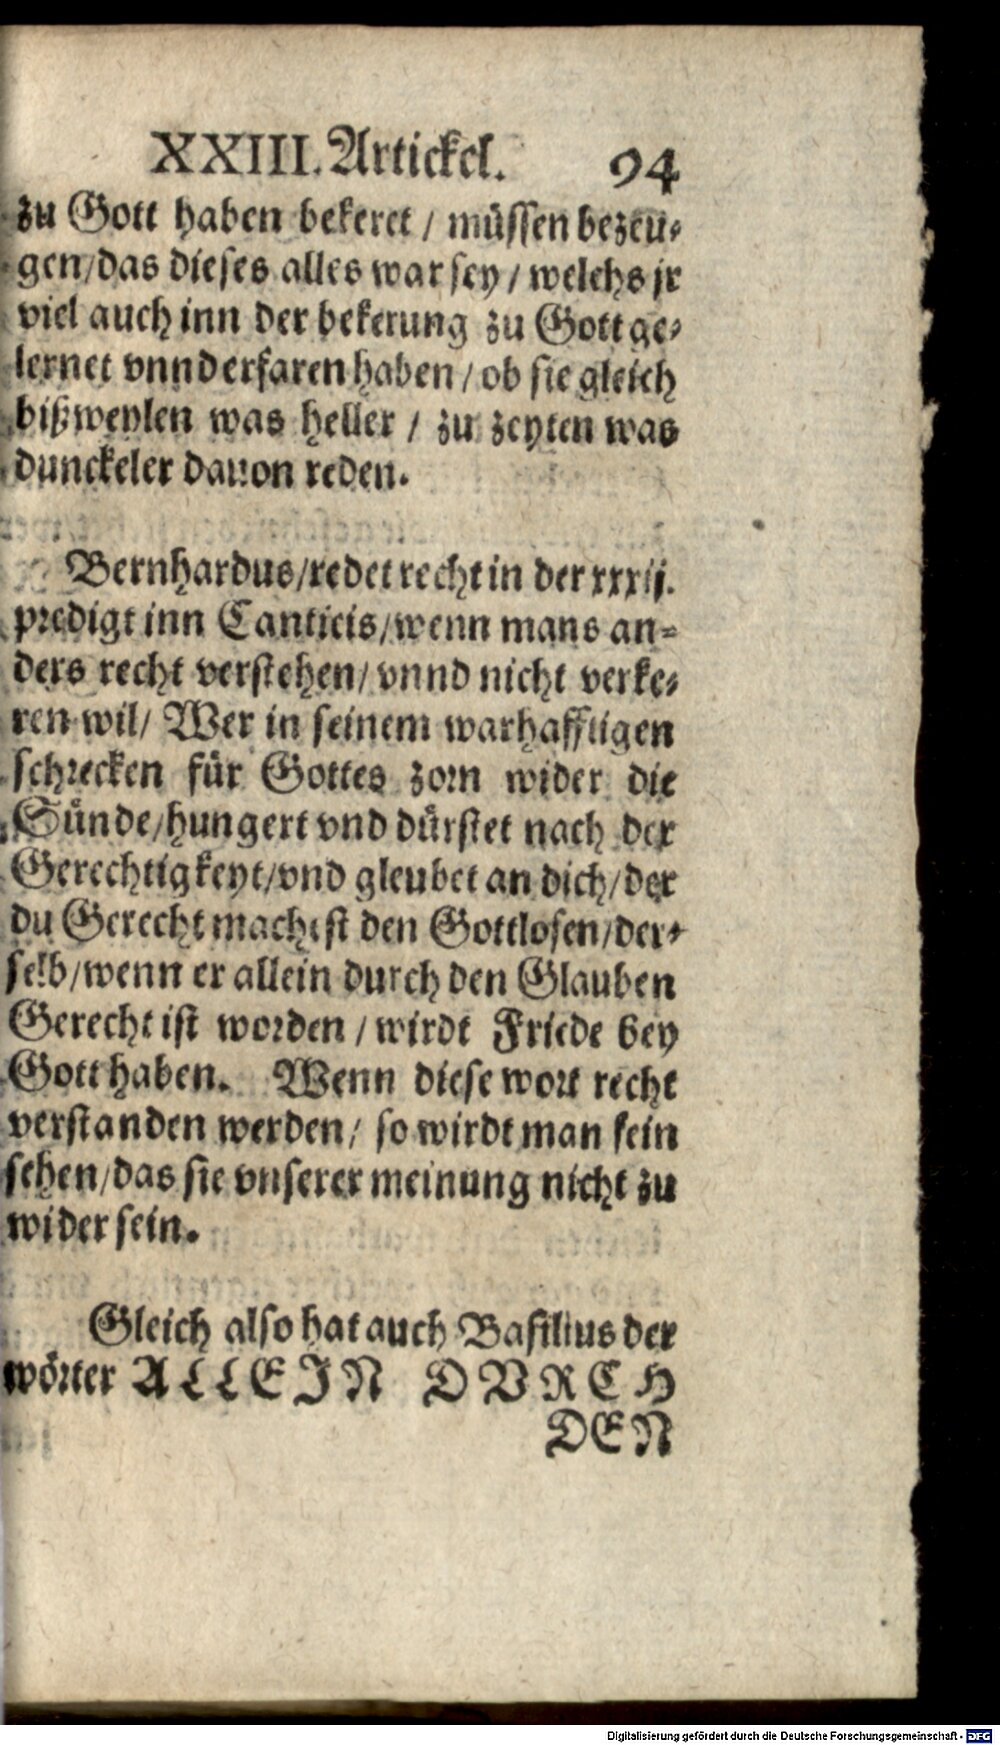 XXIII. Artickel. 94
zu Gott haben bekeret / müssen bezeu-
gen/das dieses alles war sey / welchs jr
viel auch inn der bekerung zu Gott ge-
lernet vnnd erfaren haben / ob sie gleich
bißweylen was heller / zu zeyten was
dunckeler dauon reden.
Bernhardus/redet recht in der xxxij.
predigt inn Canticis/wenn mans an-
ders recht verstehen/ vnnd nicht verke-
ren wil/ Wer in seinem warhafftigen
schrecken für Gottes zorn wider die
Sünde/hungert vnd dürstet nach der
Gerechtigkeyt/vnd gleubet an dich/der
du Gerecht machest den Gottlosen/der-
selb/wenn er allein durch den Glauben
Gerecht ist worden / wirdt Friede bey
Gott haben. Wenn diese wort recht
verstanden werden/ so wirdt man fein
sehen/das sie vnserer meinung nicht zu
wider sein.
Gleich also hat auch Basilius der
wörter ALLEIN DVRCH
DEN
Digitalisierung gefördert durch die Deutsche Forschungsgemeinschaft - DFG